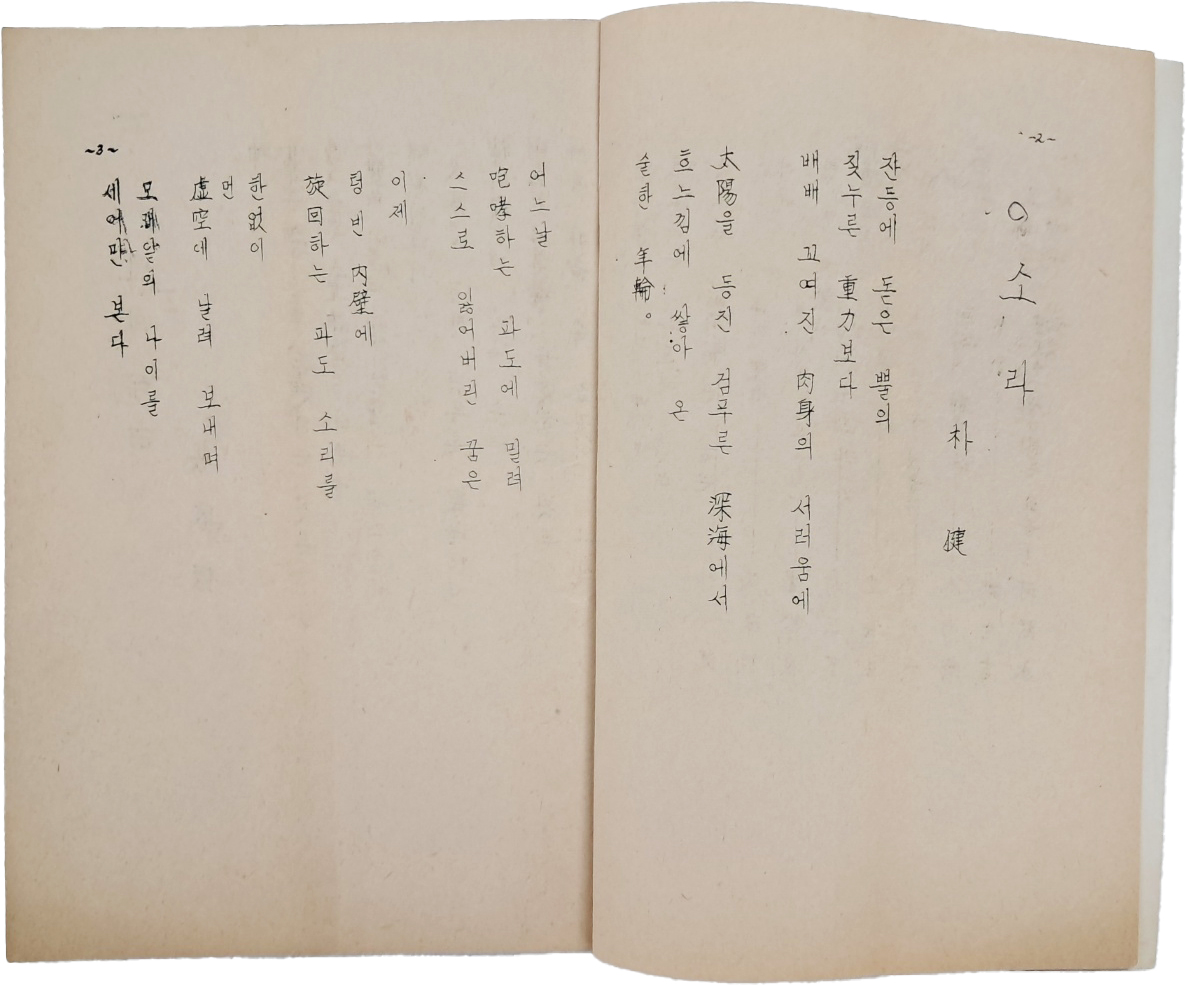 ~2~
○ 소 라
朴 健
잔등에 돋은 뿔의
짖누른 重力보다
배배 꼬여진 肉身의 서러움에
太陽을 등진 검푸른 深海에서
흐느낌에 쌓아 온
숱한 年輪。
어느날
咆哮하는 파도에 밀려
스스로 잃어버린 꿈은
이제
텅 빈 內壁에
旋回하는 파도 소리를
한없이
먼
虛空에 날려 보내며
나이를
본다
~3~